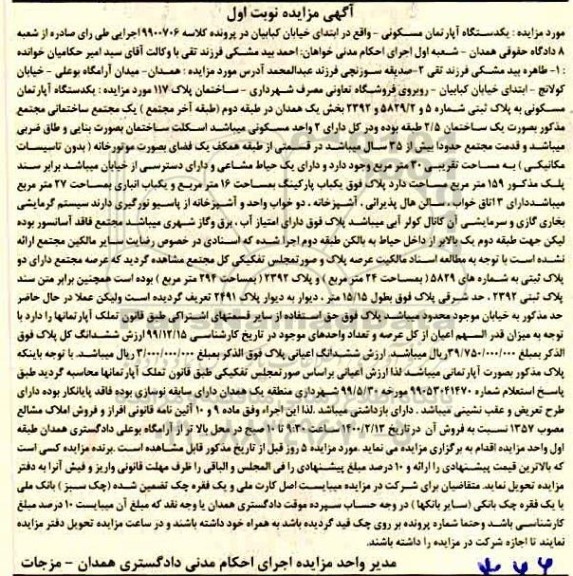 آگهی مزایده نوبت اول
مورد مزایده : یکدستگاه آپارتمان مسکونی - واقع در ابتدای خیابان کبابیان در پرونده کلاسه ۹۹۰۰۷۰۶ اجرایی طی رای صادره از شعبه
۸ دادگاه حقوقی همدان - شعبه اول اجرای احکام مدنی خواهان: احمد بید مشکی فرزند تقی با وکالت آقای سید امیر حکامیان خوانده
: ۱- طاهره بید مشکی فرزند تقی ۲-صدیقه سوزنچی فرزند عبدالمحمد آدرس مورد مزایده : همدان- میدان آرامگاه بوعلی - خیابان
کولانج - ابتدای خیابان کبابیان - روبروی فروشگاه تعاونی مصرف شهرداری - ساختمان پلاک ۱۱۷ مورد مزایده : یکدستگاه آپارتمان
مسکونی به پلاک ثبتی شماره ۵ و ۵۸۳۹/۲ و ۲۳۹۲ بخش یک همدان در طبقه دوم (طبقه آخر مجتمع ) یک مجتمع ساختمانی مجتمع
مذکور بصورت یک ساختمان ۲/۵ طبقه بوده ودر کل دارای ۲ واحد مسکونی میباشد اسکلت ساختمان بصورت بنایی و طاق ضربی
میباشد و قدمت مجتمع حدودا بیش از ۳۵ سال میباشد در قسمتی از طبقه همکف یک فضای بصورت موتورخانه ( بدون تاسیسات
مکانیکی ) به مساحت تقریبی ۳۰ متر مربع وجود دارد و دارای یک حیاط مشاعی و دارای دسترسی از خیابان میباشد برابر سند
پلک مذکور ۱۵۹ متر مربع مساحت دارد پلاک فوق یکباب پارکینگ بمساحت ۱۶ متر مربع و یکباب انباری بمساحت ۲۷ متر مربع
میباشددارای ۳ اتاق خواب ،سالن هال پذیرائی ، آشپزخانه ، دو خواب واحد و آشپزخانه از پاسیو نورگیری دارند سیستم گرمایشی
بخاری گازی و سرمایشی آن کانال کولر آبی میباشد پلاک فوق دارای امتیاز آب ، برق وگاز شهری میباشد مجتمع فاقد آسانسور بوده
لیکن جهت طبقه دوم یک بالابر از داخل حیاط به بالکن طبقه دوم اجرا شده که اسنادی در خصوص رضایت سایر مالکین مجتمع ارائه
نشده است با توجه به مطالعه اسناد مالکیت عرصه پلاک و صورتمجلس تفکیکی کل مجتمع مشاهده گردید که عرصه مجتمع دارای دو
پلاک ثبتی به شماره های ۵۸۲۹ ( بمساحت ۲۴ متر مربع ) و پلاک ۲۳۹۲ ( بمساحت ۲۹۴ متر مربع ) بوده است همچنین برابر متن سند
پلاک ثبتی ۲۳۹۲ ، حد شرقی پلاک فوق بطول ۱۵/۱۵ متر ، دیوار به دیوار پلاک ۲۴۹۱ تعریف گردیده است ولیکن عملا در حال حاضر
حد مذکور به خیابان موجود محدود میباشد پلاک فوق حق استفاده از سایر قسمتهای اشتراکی طبق قانون تملک آپارتمانها را دارد با
توجه به میزان قدر السهم اعیان از کل عرصه و تعداد واحدهای موجود در تاریخ کارشناسی ۹۹/۱۲/۱۵ ارزش ششدانگ کل پلاک فوق
الذکر بمبلغ ۳۹/۷۵۰/۰۰۰/۰۰۰ریال میباشد. ارزش ششدانگ اعیانی پلاک فوق الذکر بمبلغ ۳/۰۰۰/۰۰۰/۰۰۰ ریال میباشد. با توجه باینکه
پلاک مذکور بصورت آپارتمانی میباشد لذا ارزش اعیانی براساس صورتمجلس تفکیکی طبق قانون تملک آپارتمانها محاسبه گردید طبق
پاسخ استعلام شماره ۹۹۰۵۳۰۴۱۴۷۰ مورخه ۹۹/۵/۳۰ شهرداری منطقه یک همدان دارای سابقه نوسازی بوده فاقد پایانکار بوده دارای
طرح تعریض و عقب نشینی میباشد . دارای بازداشتی میباشد .لذا این اجراء وفق ماده ۹ و ۱۰ آئین نامه قانونی افراز و فروش املاک مشاع
مصوب ۱۳۵۷ نسبت به فروش آن در تاریخ ۱۴۰۰/۲/۱۳ ساعت ۹:۳۰ تا ۱۰ صبح در محل بالا تر از آرامگاه بوعلی دادگستری همدان طبقه
اول واحد مزایده اقدام به برگزاری مزایده می نماید .مورد مزایده ۵ روز قبل از تاریخ مذکور قابل مشاهده است .برنده مزایده کسی است
که بالاترین قیمت پیشنهادی را ارائه و ۱۰ درصد مبلغ پیشنهادی را فی المجلس و الباقی را ظرف مهلت قانونی واریز و فیش آنرا به دفتر
مزایده تحویل نماید. متقاضیان برای شرکت در مزایده میبایست اصل کارت ملی و یک فقره چک تضمین شده (چک سبز ) بانک ملی
یا یک فقره چک بانکی (سایر بانکها ) در وجه حساب سپرده موقت دادگستری همدان یا وجه نقد که مبلغ آن میبایست ۱۰ درصد مبلغ
کارشناسی باشد وحتما شماره پرونده بر روی چک قید گردیده باشد به همراه خود داشته باشند و در ساعت مزایده تحویل دفتر مزایده
نمایند تا اجازه شرکت در مزایده را داشته باشند.
مدیر واحد مزایده اجرای احکام مدنی دادگستری همدان - مزجات